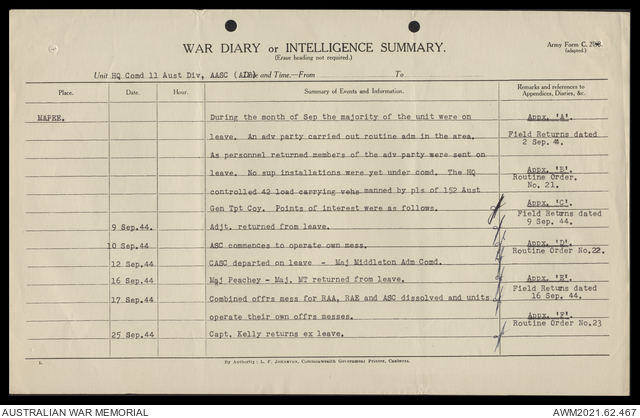 WAR DIARY or INTELLIGENCE SUMMARY.
(Erase heading not required.)
Army Form C.
(adapted.)
Unit HQ Comd 11 Aust Div, AASC (AIF) and Time.—From To
Place. Date. Hour. Summary of Events and Information. Remarks and references to Appendices, Diaries, &c.
MAPEE. During the month of Sep the majority of the unit were on Appx. 'A'.
leave. An adv party carried out routine adm in the area. Field Returns dated
2 Sep. 44.
As personnel returned members of the adv party were sent on
leave. No sup installations were yet under comd. The HQ Appx. 'B'
Routine Order.
No. 21.
controlled 42 load carrying vehs manned by pls of 152 Aust
Gen Tpt Coy. Points of interest were as follows. Appx. 'C'
Field Returns dated
9 Sep. 44.
9 Sep.44. Adjt. returned from leave.
10 Sep.44. ASC commences to operate own mess. Appx. 'D'
Routine Order No.22.
12 Sep.44 CASC departed on leave - Maj Middleton Adm Comd.
16 Sep.44 Maj Peachey - Maj. MT returned from leave. Appx. 'E'
Field Returns dated
16 Sep. 44.
17 Sep.44 Combined offrs mess for RAA, RAE and ASC dissolved and units
operate their own offrs messes. Appx. 'F'
Routine Order No.23
25 Sep.44 Capt. Kelly returns ex leave.
By Authority: L. F. Johnston, Commonwealth Government Printer, Canberra.
AUSTRALIAN WAR MEMORIAL
AWM2021.62.467